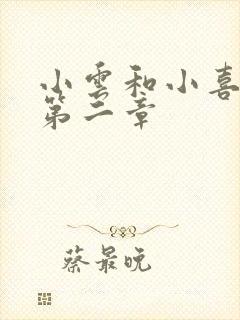 小雲和小喜
第二章
蔡最晚